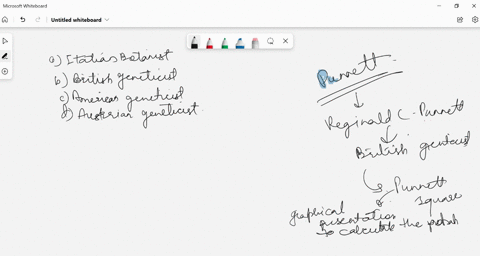 Microsoft Whiteboard
Untitled whiteboard
a) Italian Botanist
b) British geneticist
c) American geneticist
d) Austrian geneticist
Punnett
Reginald C. Punnett
British geneticist
Punnett
Square
graphical
presentation
to calculate the